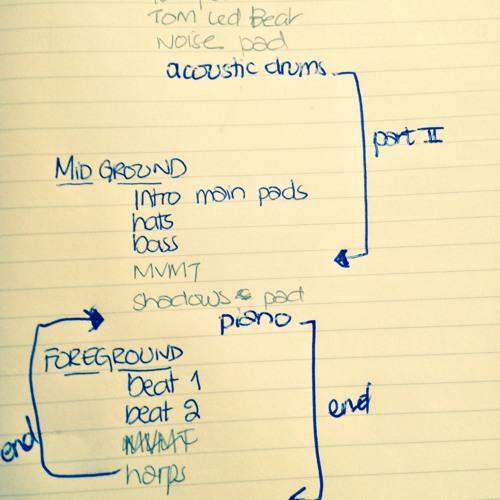 Tom Led Beat
Noise pad
acoustic drums
part II
MID GROUND
Intro main pads
hats
bass
MVMT
shadows pad
piano
FOREGROUND
beat 1
beat 2
end
MVMT
end
harps